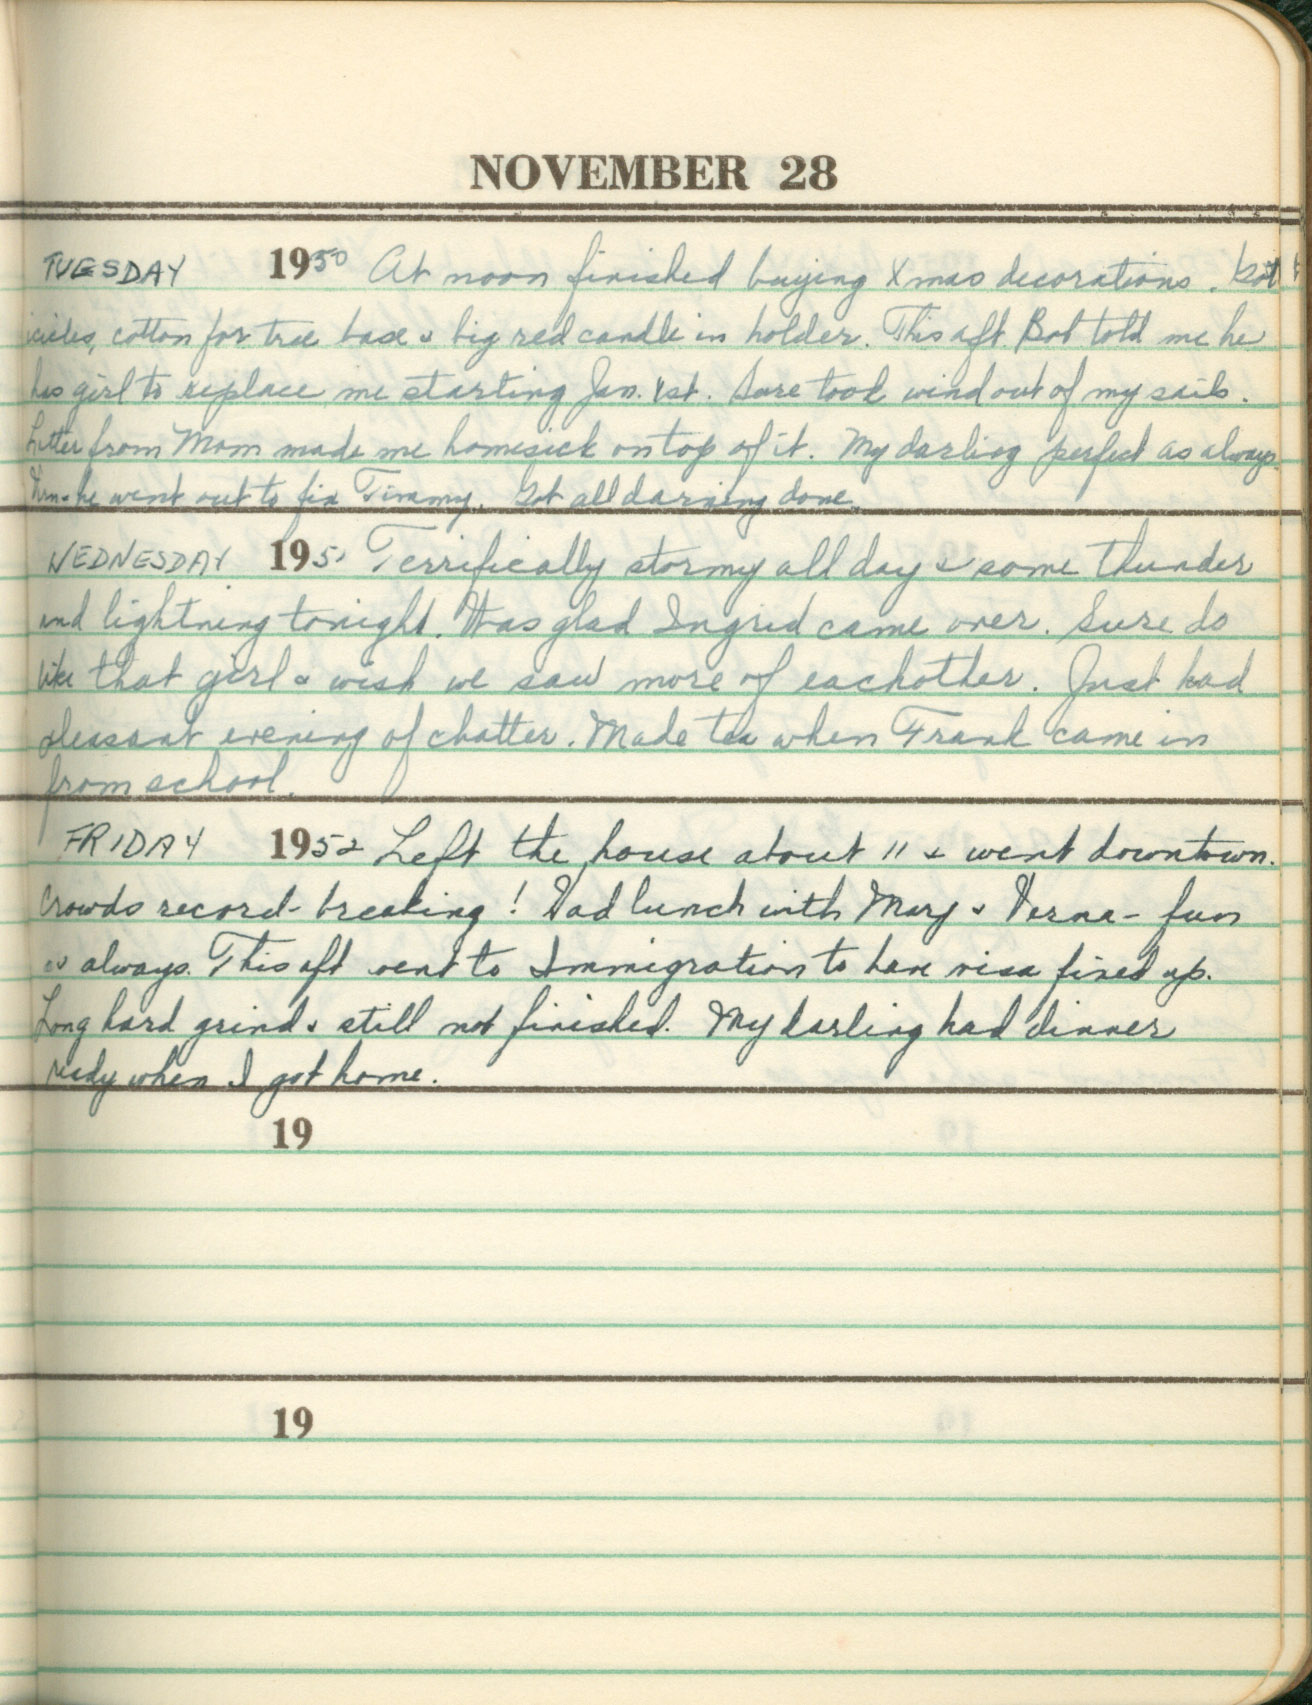 NOVEMBER 28
TUESDAY 1950 At noon finished buying Xmas decorations. Got
icicles, cotton for tree base & big red candle in holder. This aft Bob told me he
has girl to replace me starting Jan. 1st. Sure took wind out of my sails.
Letter from Mom made me homesick on top of it. My darling perfect as always
then he went out to fix Timmy. Got all darning done.
WEDNESDAY 1951 Terrifically stormy all day & some thunder
and lightning tonight. Was glad Ingrid came over. Sure do
like that girl & wish we saw more of eachother. Just had
pleasant evening of chatter. Made tea when Frank came in
from school.
FRIDAY 1952 Left the house about 11 & went downtown.
Crowds record-breaking! Had lunch with Mary & Verna - fun
as always. This aft went to Immigration to have visa fixed up.
Long hard grind & still not finished. My darling had dinner
ready when I got home.
19
19